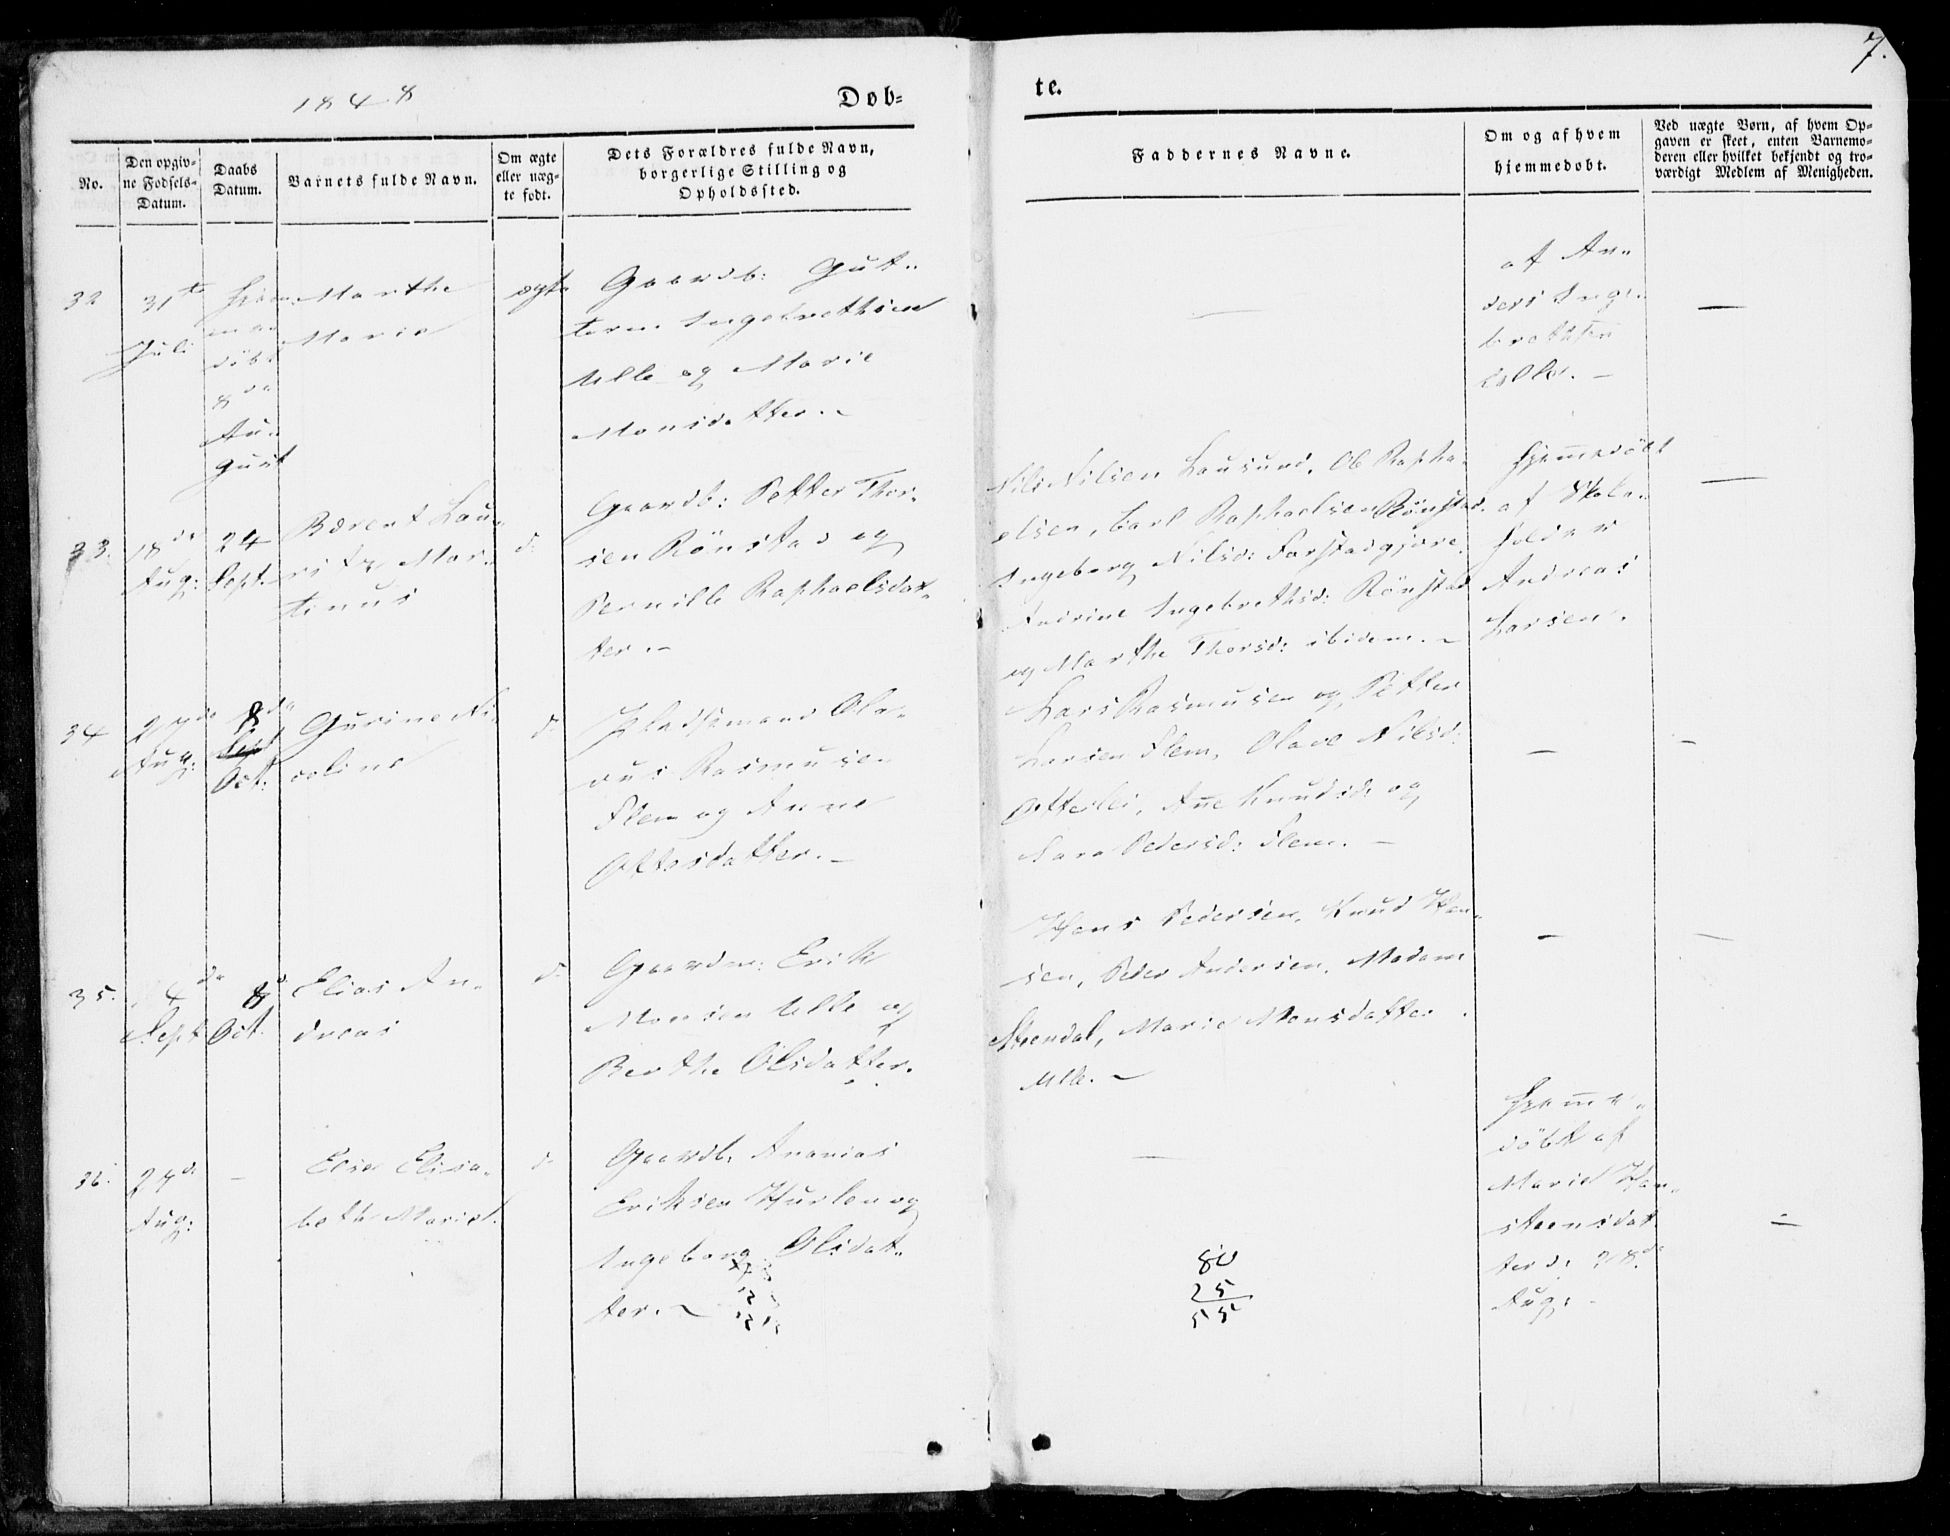 7.
1848
Døb=
te.
No.
Den opgiv=
ne Fødsels=
Datum.
Daabs
Datum.
Barnets fulde Navn.
Om ægte
eller uæg=
te født.
Dets Forældres fulde Navn,
borgerlige Stilling og
Opholdssted.
Faddernes Navne.
Om og af hvem
hjemmedøbt.
Ved uægte Børn, af hvem Op=
gaven er skeet, enten Barnemo=
deren eller hvilket bekjendt og tro=
værdigt Medlem af Menigheden.
32
31te
Juli
Hjem
me
døbt
8de
Au-
gust
Marthe
Marie
ægte
Gaardb: Gut-
torm Ingebrethsen
Ulle og Marie
Monsdatter. -
—
af An-
ders Inge-
brethsen
Ulle. -
—
33.
18de
Aug:
24
Sept.
Bærent Lau-
ritz Mar-
tinus
d:
Gaardb: Petter Thor-
sen Rönstad og
Pernille Raphaelsdat-
ter. -
Nils Nilsen Lausund, Ole Rapha-
elsen, Carl Raphaelsen Rönstad.
Ingeborg Nilsd: Farstadgjære,
Andrine Ingebrethsd: Rönstad
og Marthe Thorsd: ibidem. -
Hjemmedöbt
af Skole-
holder
Andreas
Larsen.
—
34
27de
Aug:
8de
Sept
Oct:
Gurine Ni-
coline
d:
Pladsmand Ola-
vus Rasmusen
Flem og Anne
Ottesdatter. -
Lars Rasmusen og Petter
Larsen Flem, Olave Nilsd:
Otterlei, Anne Knudsd: og
Sara Pedersd: Flem. -
—
—
35.
4de
Sept
8d
Oct.
Elias An-
dreas
d:
Gaardm: Erik
Monsen Ulle og
Berthe Olsdatter.
Hans Pedersen, Knud Han-
sen, Peder Andersen, Madam
Stendal, Marie Monsdatter
Ulle. -
—
—
36.
27d.
Aug:
—
Else Elisa-
beth Marie.
d:
Gaardb. Ananias
Eriksen Hurlen og
Ingeborg Olsdat-
ter. -
—
Hjemme-
döbt af
Marie Han-
steensdat-
ter d: 28de
Aug: -
—
80
25
55